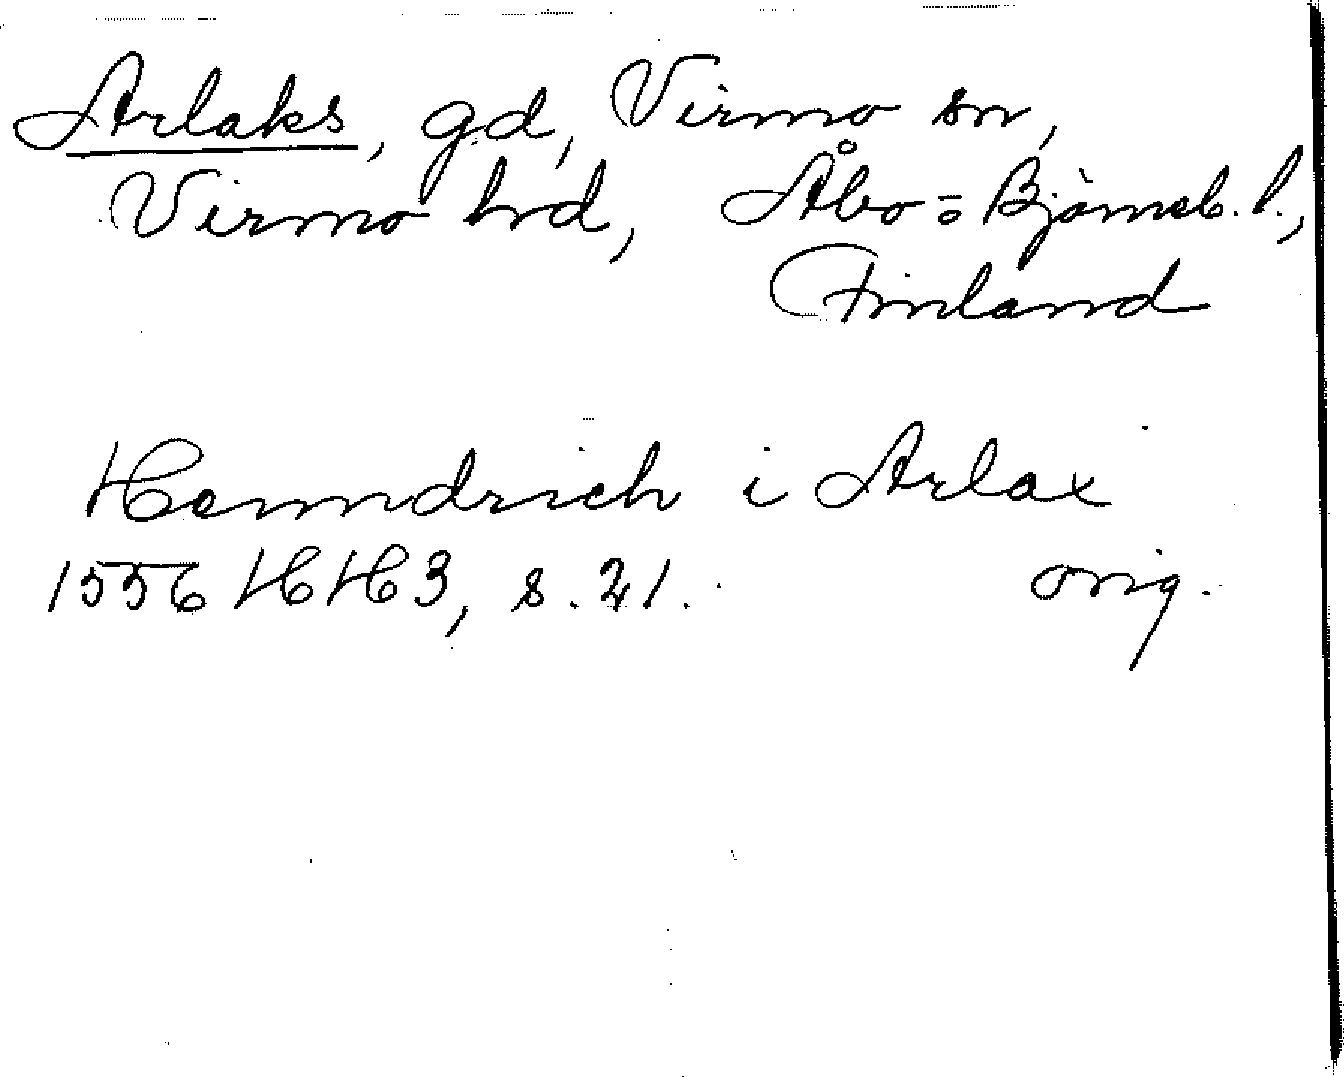 Arlaks, gd, Virmo sn,
Virmo hrd, Åbo=Björneb. l.,
Finland
Hanndrich i Arlax
1556 HH3, s. 21. orig.